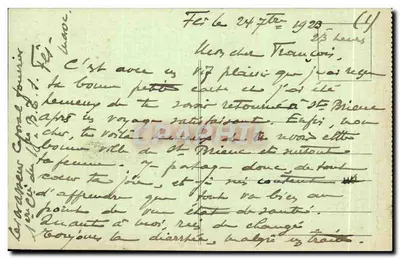 Fès le 24 7bre 1923 (1)
23 heures
Mon cher François,
C'est avec un vif plaisir que j'ai reçu
ta bonne petite carte et j'ai été
heureux de te savoir retourné à St Brieuc
après un voyage satisfaisant. Enfin, mon
cher, te voilà heureux de revoir cette
bonne ville de St Brieuc et surtout
ta femme. Je partage donc de tout
cœur ta joie, et je suis content
d'apprendre que tout va bien au
point de vue état de santé.
Quant à moi, rien de changé
Toujours la diarrhée, malgré un
Levasseur Caporal fourrier
Fès
Maroc